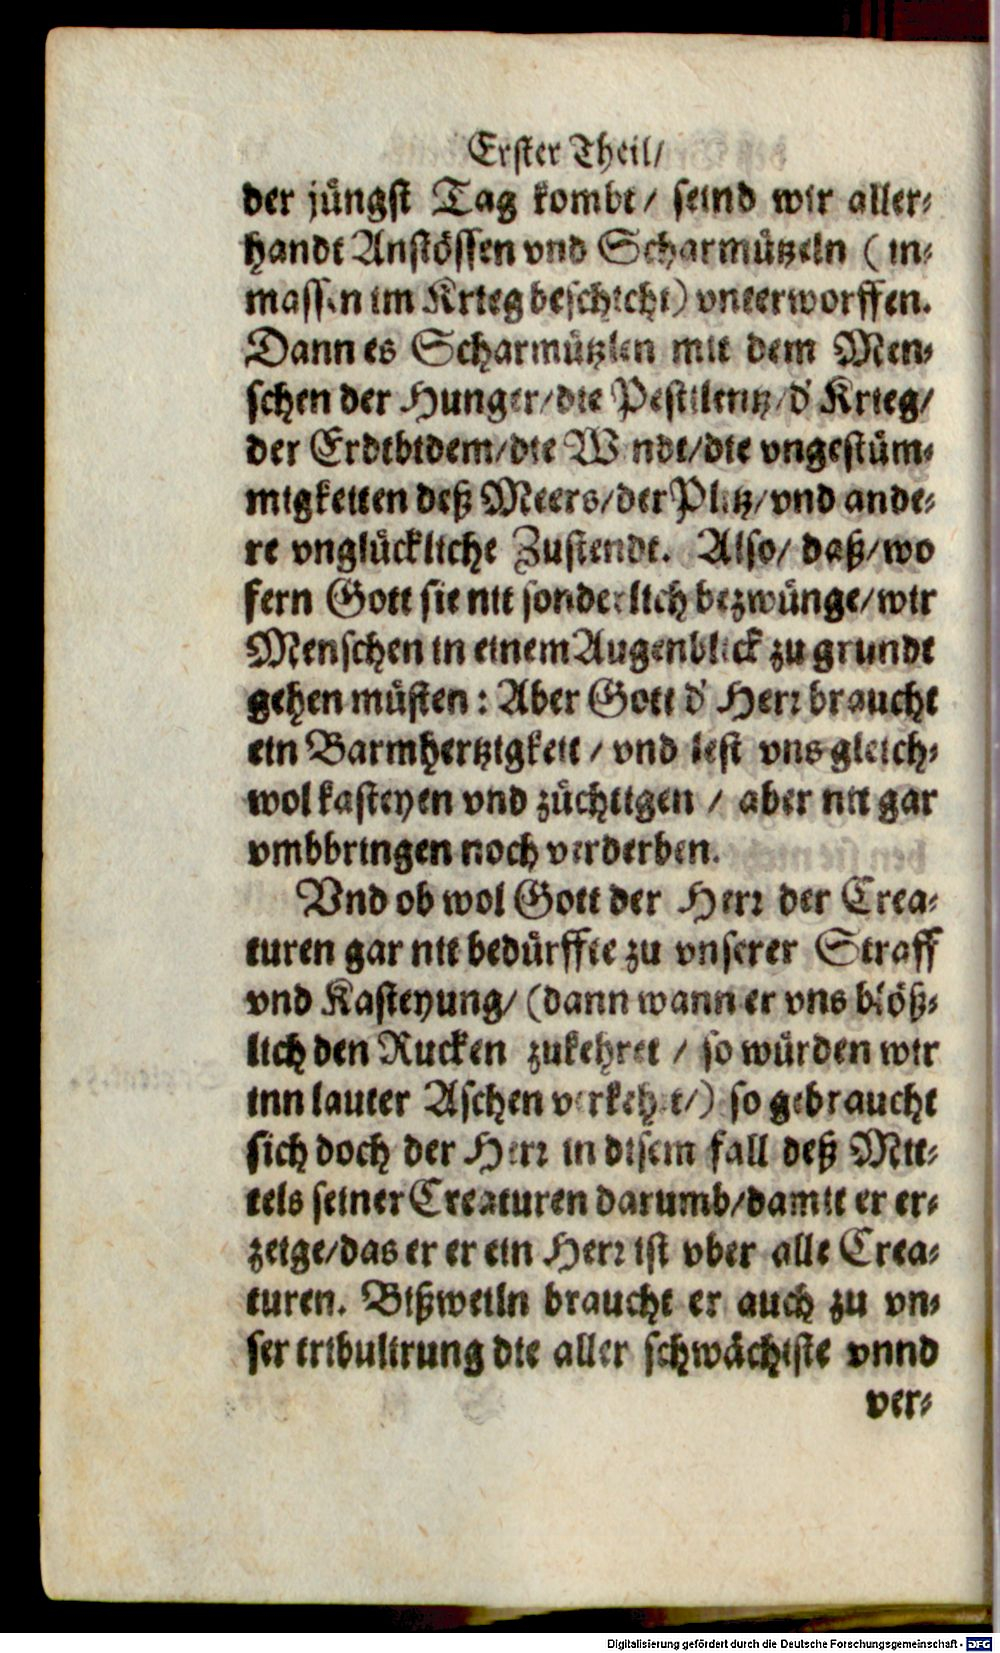 Erster Theil/
der jüngst Tag kombt/ seind wir aller⸗
handt Anstössen vnd Scharmützeln (in⸗
massen im Krieg beschicht) vnterworffen.
Dann es Scharmützlen mit dem Men⸗
schen der Hunger/die Pestilentz/d' Krieg/
der Erdtbidem/die Windt/die vngestüm⸗
migkeiten deß Meers/der Plitz/vnd ande⸗
re vnglückliche Zustendt. Also/ daß/wo
fern Gott sie nit sonderlich bezwünge/wir
Menschen in einem Augenblick zu grundt
gehen müsten: Aber Gott d' Herr braucht
ein Barmhertzigkeit/ vnd lest vns gleich⸗
wol kasteyen vnd züchtigen / aber nit gar
vmbbringen noch verderben.
Vnd ob wol Gott der Herr der Crea⸗
turen gar nit bedürffte zu vnserer Straff
vnd Kasteyung/ (dann wann er vns blöß⸗
lich den Rucken zukehret / so würden wir
inn lauter Aschen verkehrt/) so gebraucht
sich doch der Herr in disem fall deß Mit⸗
tels seiner Creaturen darumb/damit er er⸗
zeige/das er er ein Herr ist vber alle Crea⸗
turen. Bißweiln braucht er auch zu vn⸗
ser tribulirung die aller schwächiste vnnd
ver⸗
Digitalisierung gefördert durch die Deutsche Forschungsgemeinschaft - DFG